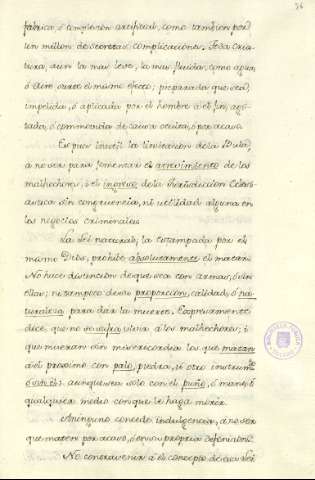 36
fabrica, ó complexion artificial, como tambien por
un millon de secretas complicaciones. Toda cria
tura, aun la mas leve, la mas fluida, como agua,
ó aire surte el mismo efecto; preparada que sea,
impelida, ó aplicada por el hombre á el fin, agi
tada, ó conmovida de causa oculta, ó por acaso.
Es pues inutil la limitacion de la Bula,
a no ser para fomentar el atrevimiento de los
malhechores, ó el ingreso de la Jurisdiccion Ecles-
iastica sin congruencia, ni utilidad alguna en
los negocios criminales.
La Lei natural, la estampada por el
mismo Dios, prohibe absolutamente el matar.
No hace distincion de que sea con armas, ó sin
ellas; ni tampoco de su proporcion, calidad, ó na
turaleza para dar la muerte. Expresamente
dice, que no a los malhechores; i
que mueran sin misericordia los que matan
á el proximo con palo, piedra, u otro instrum.to
aunque sea solo con el puño, ó mano, ó
qualquier medio con que le haga morir.
A ninguno concede indulgencia, a no ser
que maten por acaso, ó en su propria defension.
No contravenir á el concepto de esa Lei